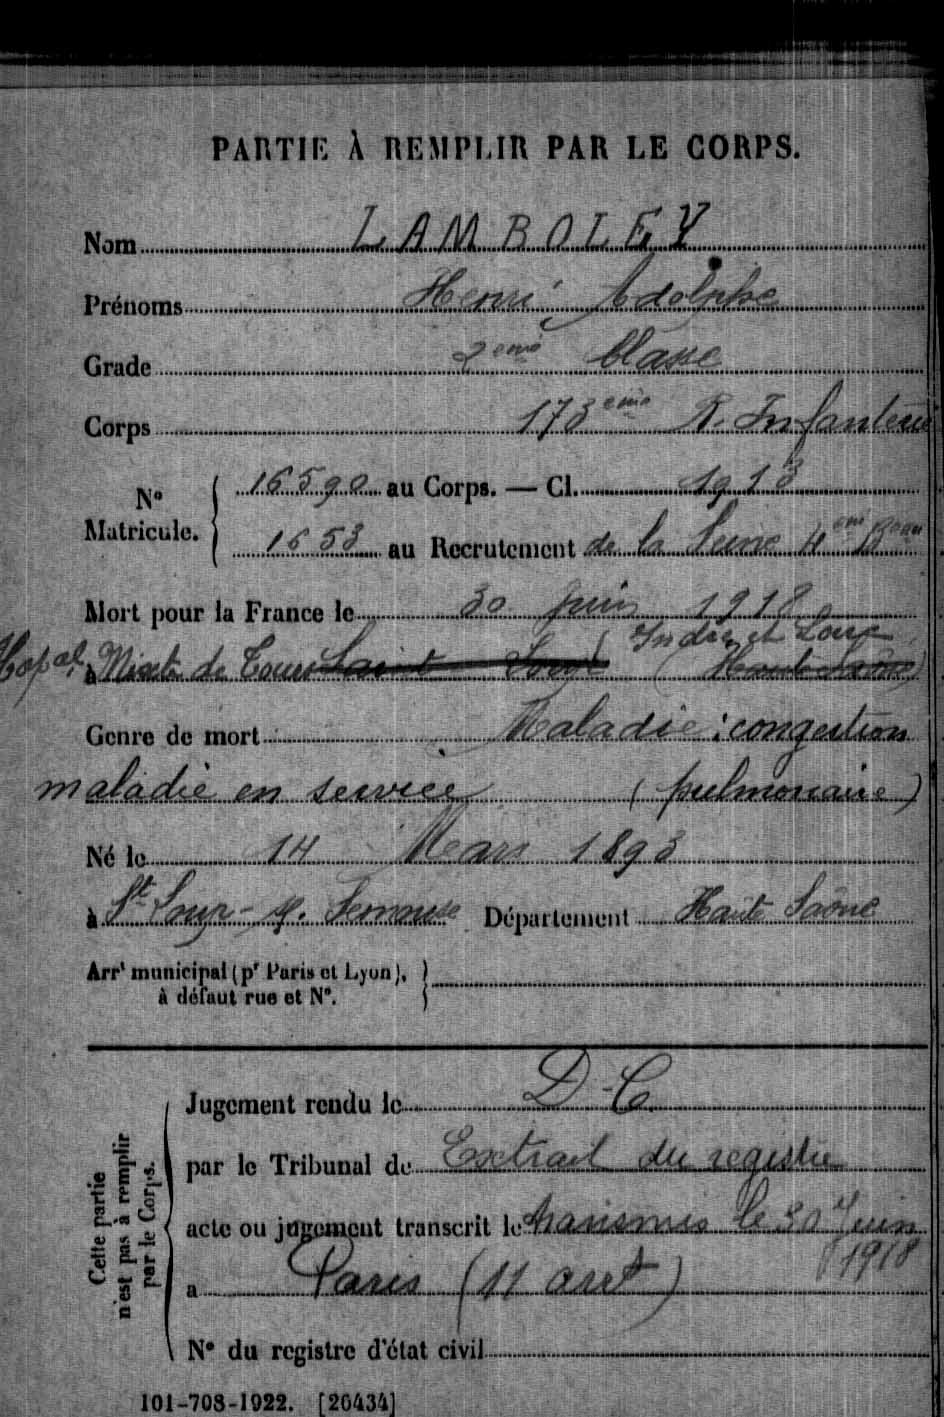 PARTIE À REMPLIR PAR LE CORPS.
Nom LAMBOLEY
Prénoms Henri, Adolphe
Grade 2eme Classe
Corps 173eme R. Infanterie
No Matricule. { 16590 au Corps. — Cl. 1913
1653 au Recrutement de la Seine 4em Beau
Mort pour la France le 30 juin 1918
Indre et Loire
à Hopal Mixte de Tours Saint Loup (Haute Saône)
Genre de mort Maladie : congestion
maladie en service (pulmonaire)
Né le 14 Mars 1893
à St Loup-s/. Semouse Département Haute Saône
Arrt municipal (pr Paris et Lyon), }
à défaut rue et No.
Cette partie n'est pas à remplir par le Corps.
Jugement rendu le D-C.
par le Tribunal de Extrait du registre
acte ou jugement transcrit le transmis le 30 Juin 1918
à Paris (11 arrt)
No du registre d'état civil
101-708-1922. [26434]